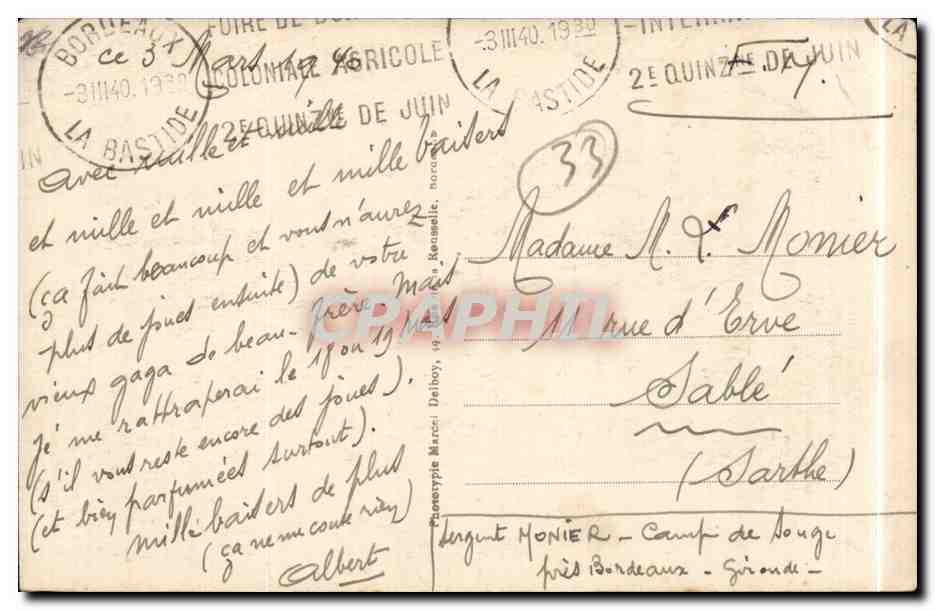 BORDEAUX
LA BASTIDE
-3 III 40. 19 30
COLONIALE AGRICOLE
2E QUINZNE DE JUIN
BORDEAUX
-3 III 40. 19 30
LA BASTIDE
2E QUINZNE DE JUIN
LA
ce 3 Mars 1940
avec mille et mille
et mille et mille et mille baisers
(ça fait beaucoup et vous n'aurez
plus de joues ensuite) de votre
vieux gaga de beau-frère, Mais
je me rattraperai le 18 ou 19 Mars
(s'il vous reste encore des joues).
(et bien parfumées surtout).
mille baisers de plus
(ça ne me coute rien)
Albert
Phototypie Marcel Delboy,
33
F.M.
Madame M. L. Monier
11 rue d'Erve
Sablé
(Sarthe)
Sergent MONIER - Camp de Souge
près Bordeaux - Gironde -
CPAPHIL